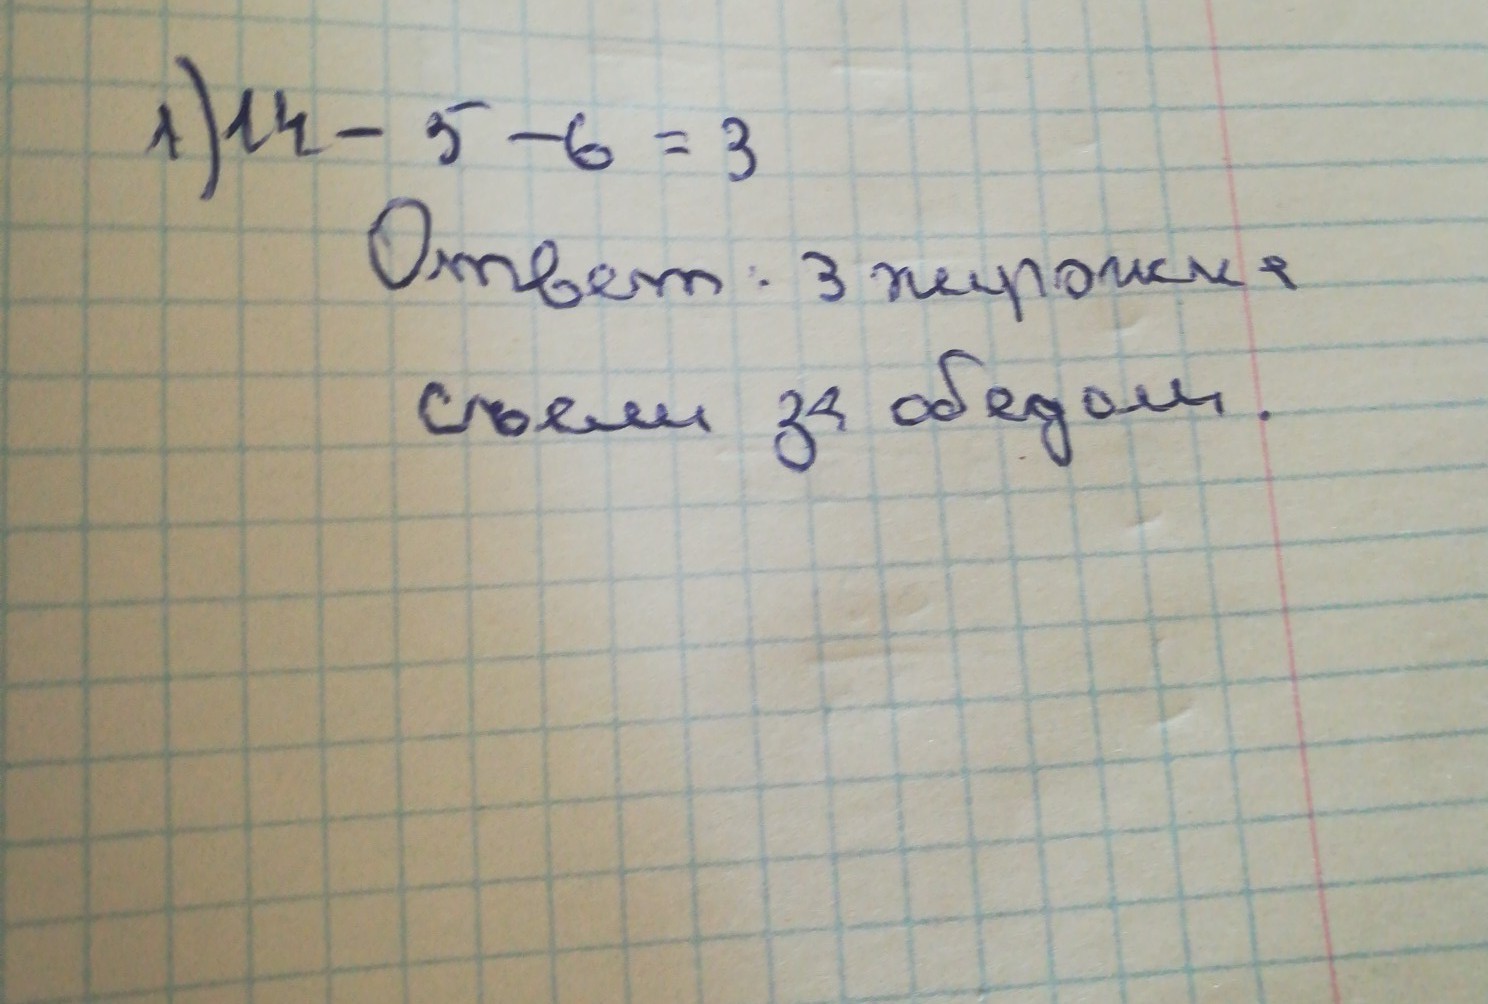 1) 14 - 5 - 6 = 3
Ответ: 3 пирожка
съели за обедом.